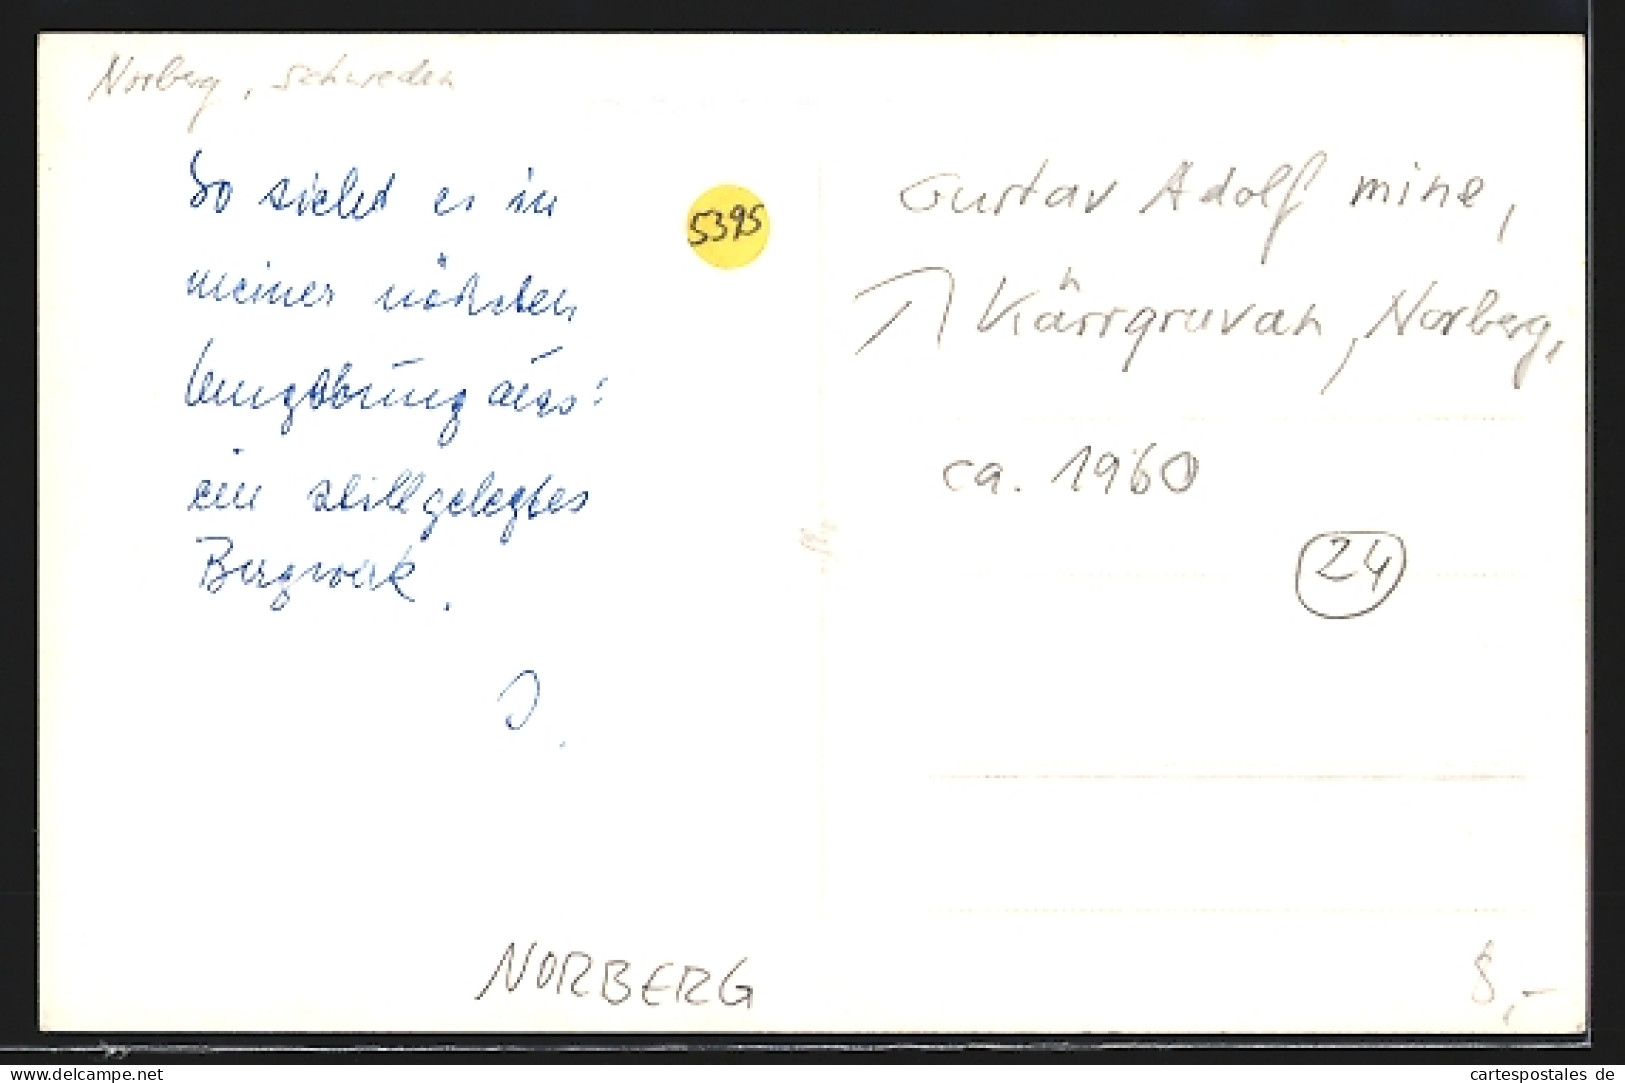 Norberg, Schweden
So sieht es in
meiner nächsten
Umgebung aus:
ein stillgelegtes
Bergwerk.
J.
5395
Gustav Adolf mine,
Kärrgruvan, Norberg,
ca. 1960
24
NORBERG
8,-
www.cartespostales.de
cartespostales de